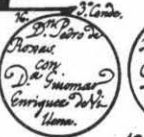 16. 3.º Conde.
Dⁿ. Pedro de
Roxas.
con
Dª Guiomar
Enriquez de Vi
llena.